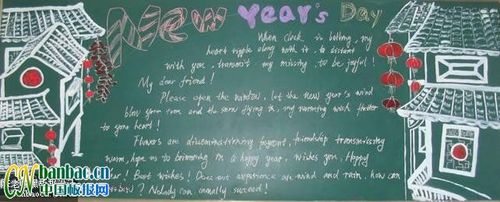 New Year's Day
When clock is bellring, my
heart ripple along with it, to distant
with you, transmit my missing, to be joyful!
My dear friend!
Please open the window, let the new year's wind
blow your room and the snow flying in, my warming wish flutter
to your heart!
Flowers are disseminating fragrant, friendship transmitting
warm, hope us to brimming in a happy year, wishes you, Happy
! Best wishes! Does not experience wind and rain, how can
? Nobody can casually succeed!
banbao.cn
中国板报网